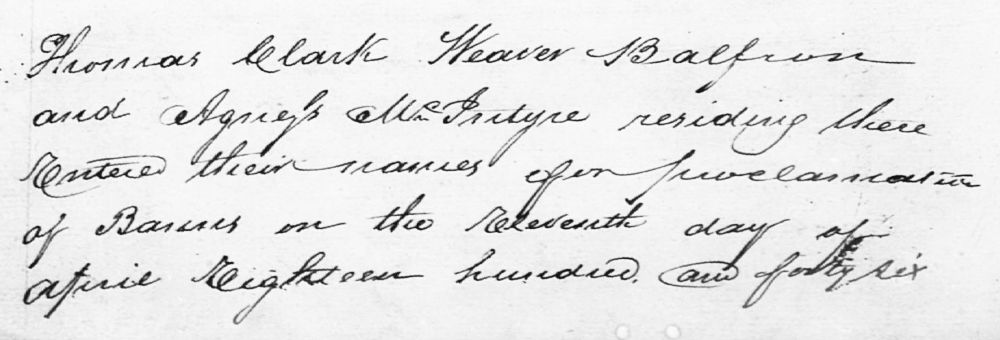 Thomas Clark Weaver Balfron
and Agness McIntyre residing there
Entered their names for proclamation
of Banns on the Eleventh day of
April Eighteen hundred and forty six